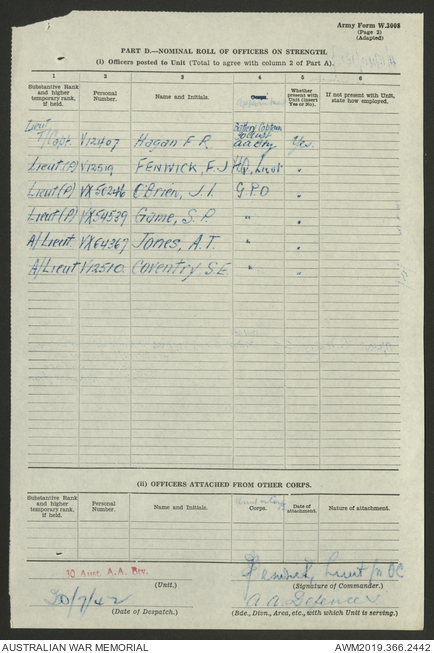 Army Form W.3008
(Page 2)
(Adapted)
PART D.—NOMINAL ROLL OF OFFICERS ON STRENGTH.
(i) Officers posted to Unit (Total to agree with column 2 of Part A).
1 2 3 4 5 6
Substantive Rank and higher temporary rank, if held.
Personal Number.
Name and Initials.
Corps.
Whether present with Unit (insert Yes or No).
If not present with Unit, state how employed.
Lieut
T/Capt. V12407 Hagan F R Battery Captain AA Bty Yes.
Lieut (P) V12519 FENWICK, F.J HQ, Lieut "
Lieut (P) VX56246 O'Brien, J.I. G.P.O "
Lieut (P) VX54539 Game, S.P. " "
A/Lieut VX64367 Jones, A.T. " "
A/Lieut V12510. Coventry, S E " "
(ii) OFFICERS ATTACHED FROM OTHER CORPS.
Substantive Rank and higher temporary rank, if held.
Personal Number.
Name and Initials.
Corps.
Date of attachment.
Nature of attachment.
10 Aust. A.A. Bty.
(Unit.)
Lieut
(Signature of Commander.)
30/7/42
(Date of Despatch.)
A.A. Defences
(Bde., Divn., Area, etc., with which Unit is serving.)
AUSTRALIAN WAR MEMORIAL
AWM2019.366.2442